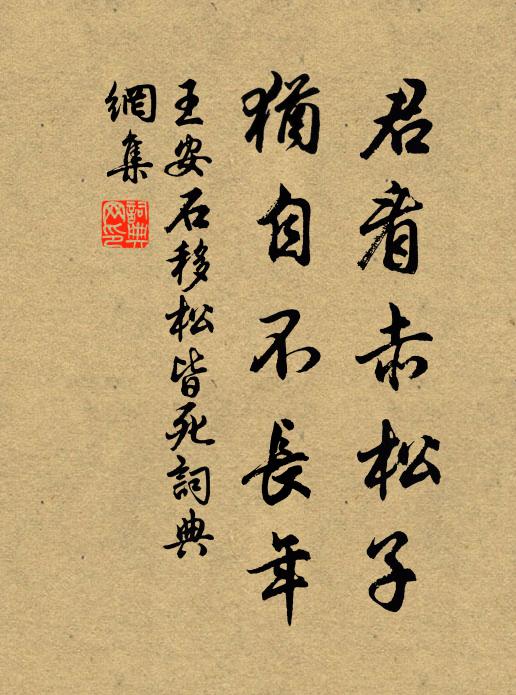 君看赤松子
猶自不長年
王安石移松皆死詞典
網集
詞典
网印